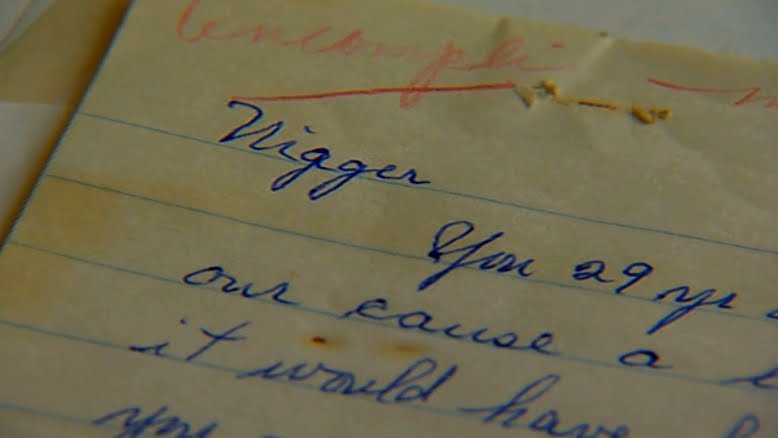 Nigger
You 29 yr
our cause a
it would have
you